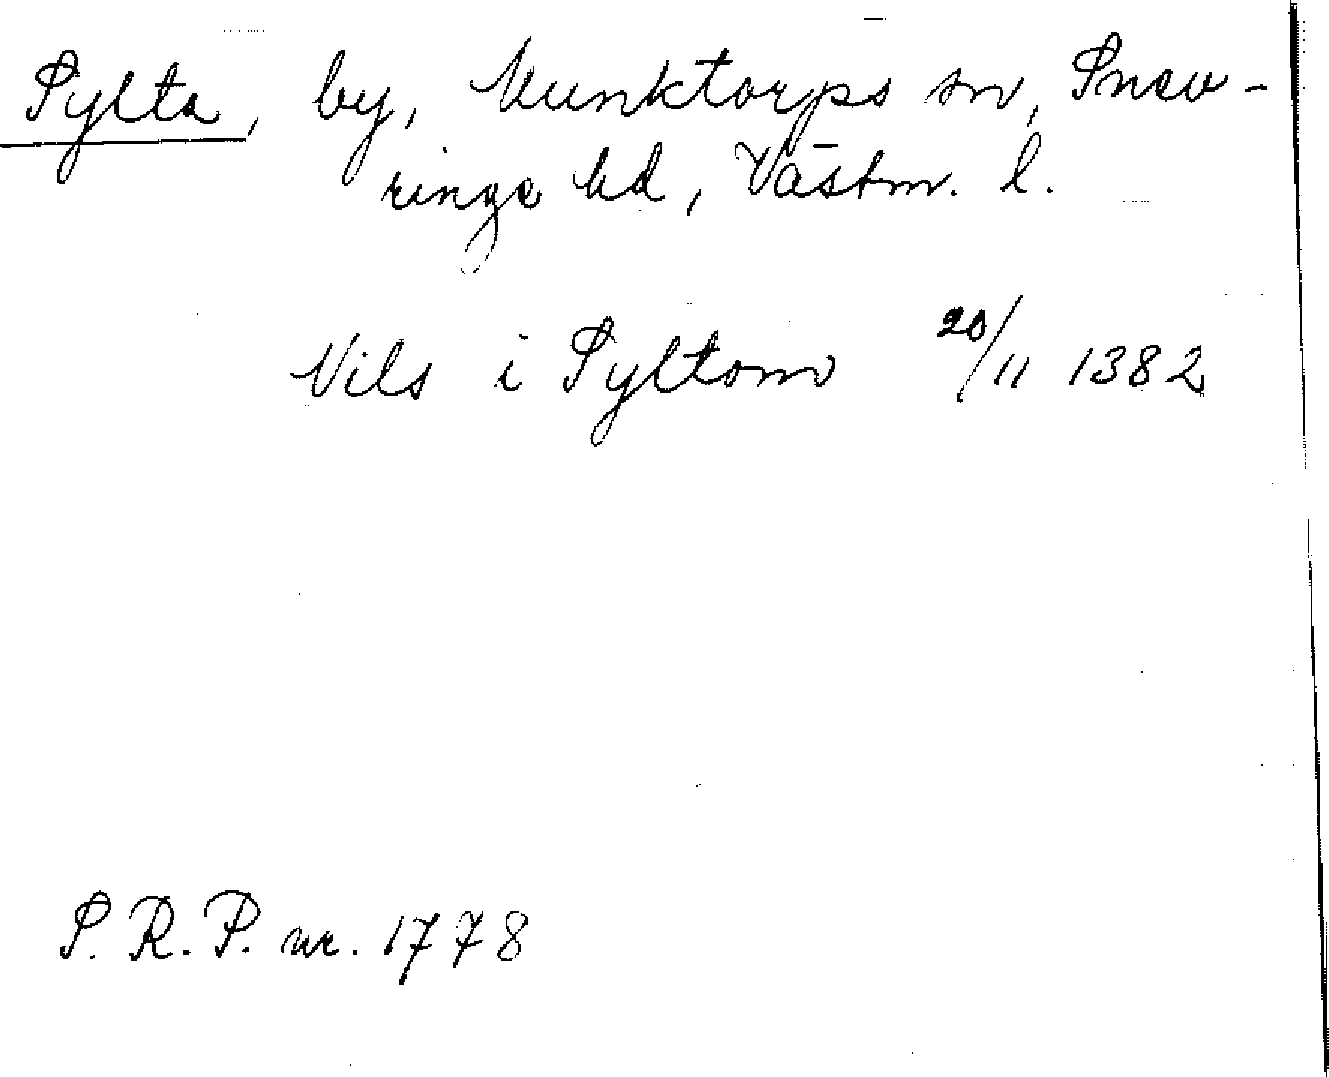 Sylta, by, Munktorps sn, Snev-
ringe hd, Västm. l.
Nils i Syltom 20/11 1382
S. R. P. nr. 1778